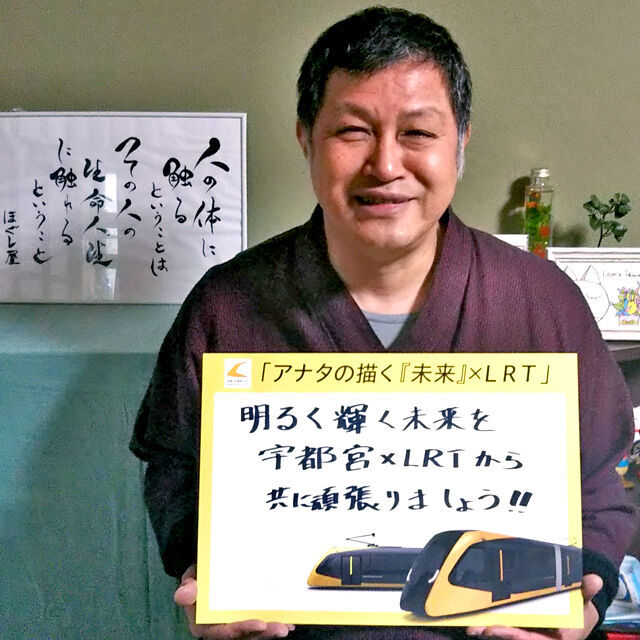 人の体に
触る
ということは
その人の
生命人生
に触れる
ということ
ほぐし屋
「アナタの描く『未来』×LRT」
明るく輝く未来を
宇都宮×LRTから
共に頑張りましょう!!